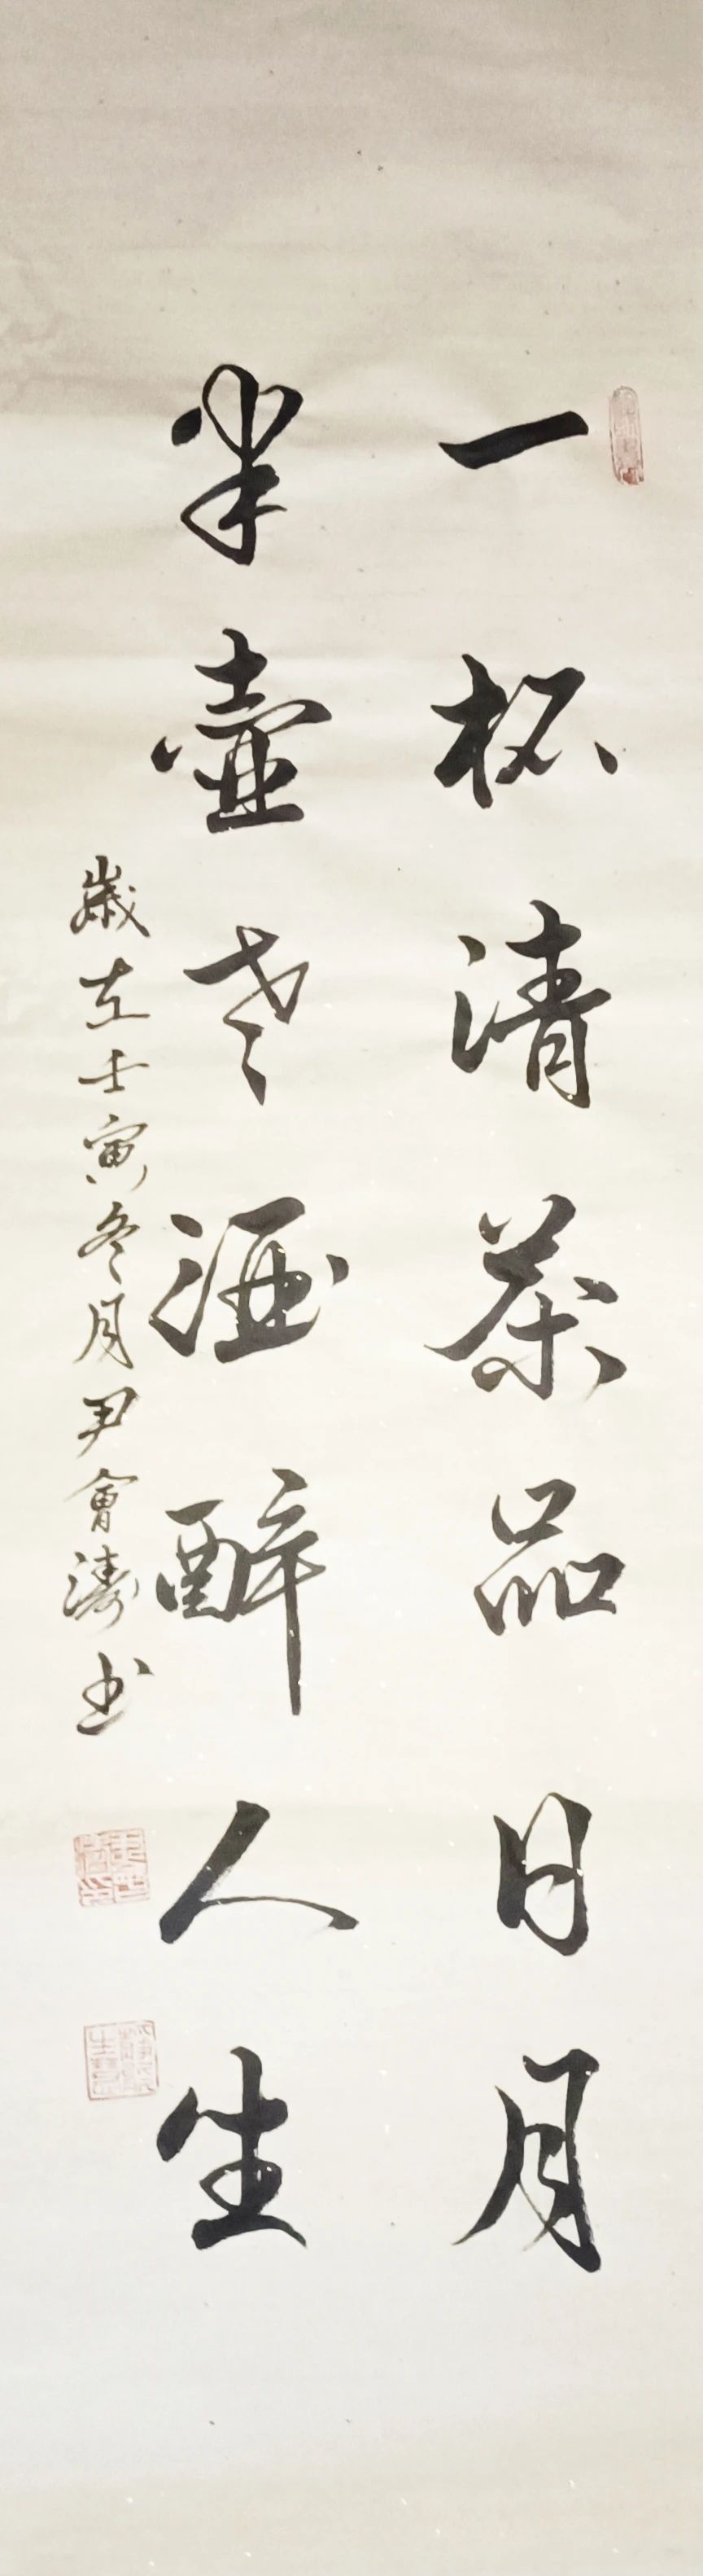 一杯清茶品日月
半壺老酒醉人生
歲在壬寅冬月尹會濤书